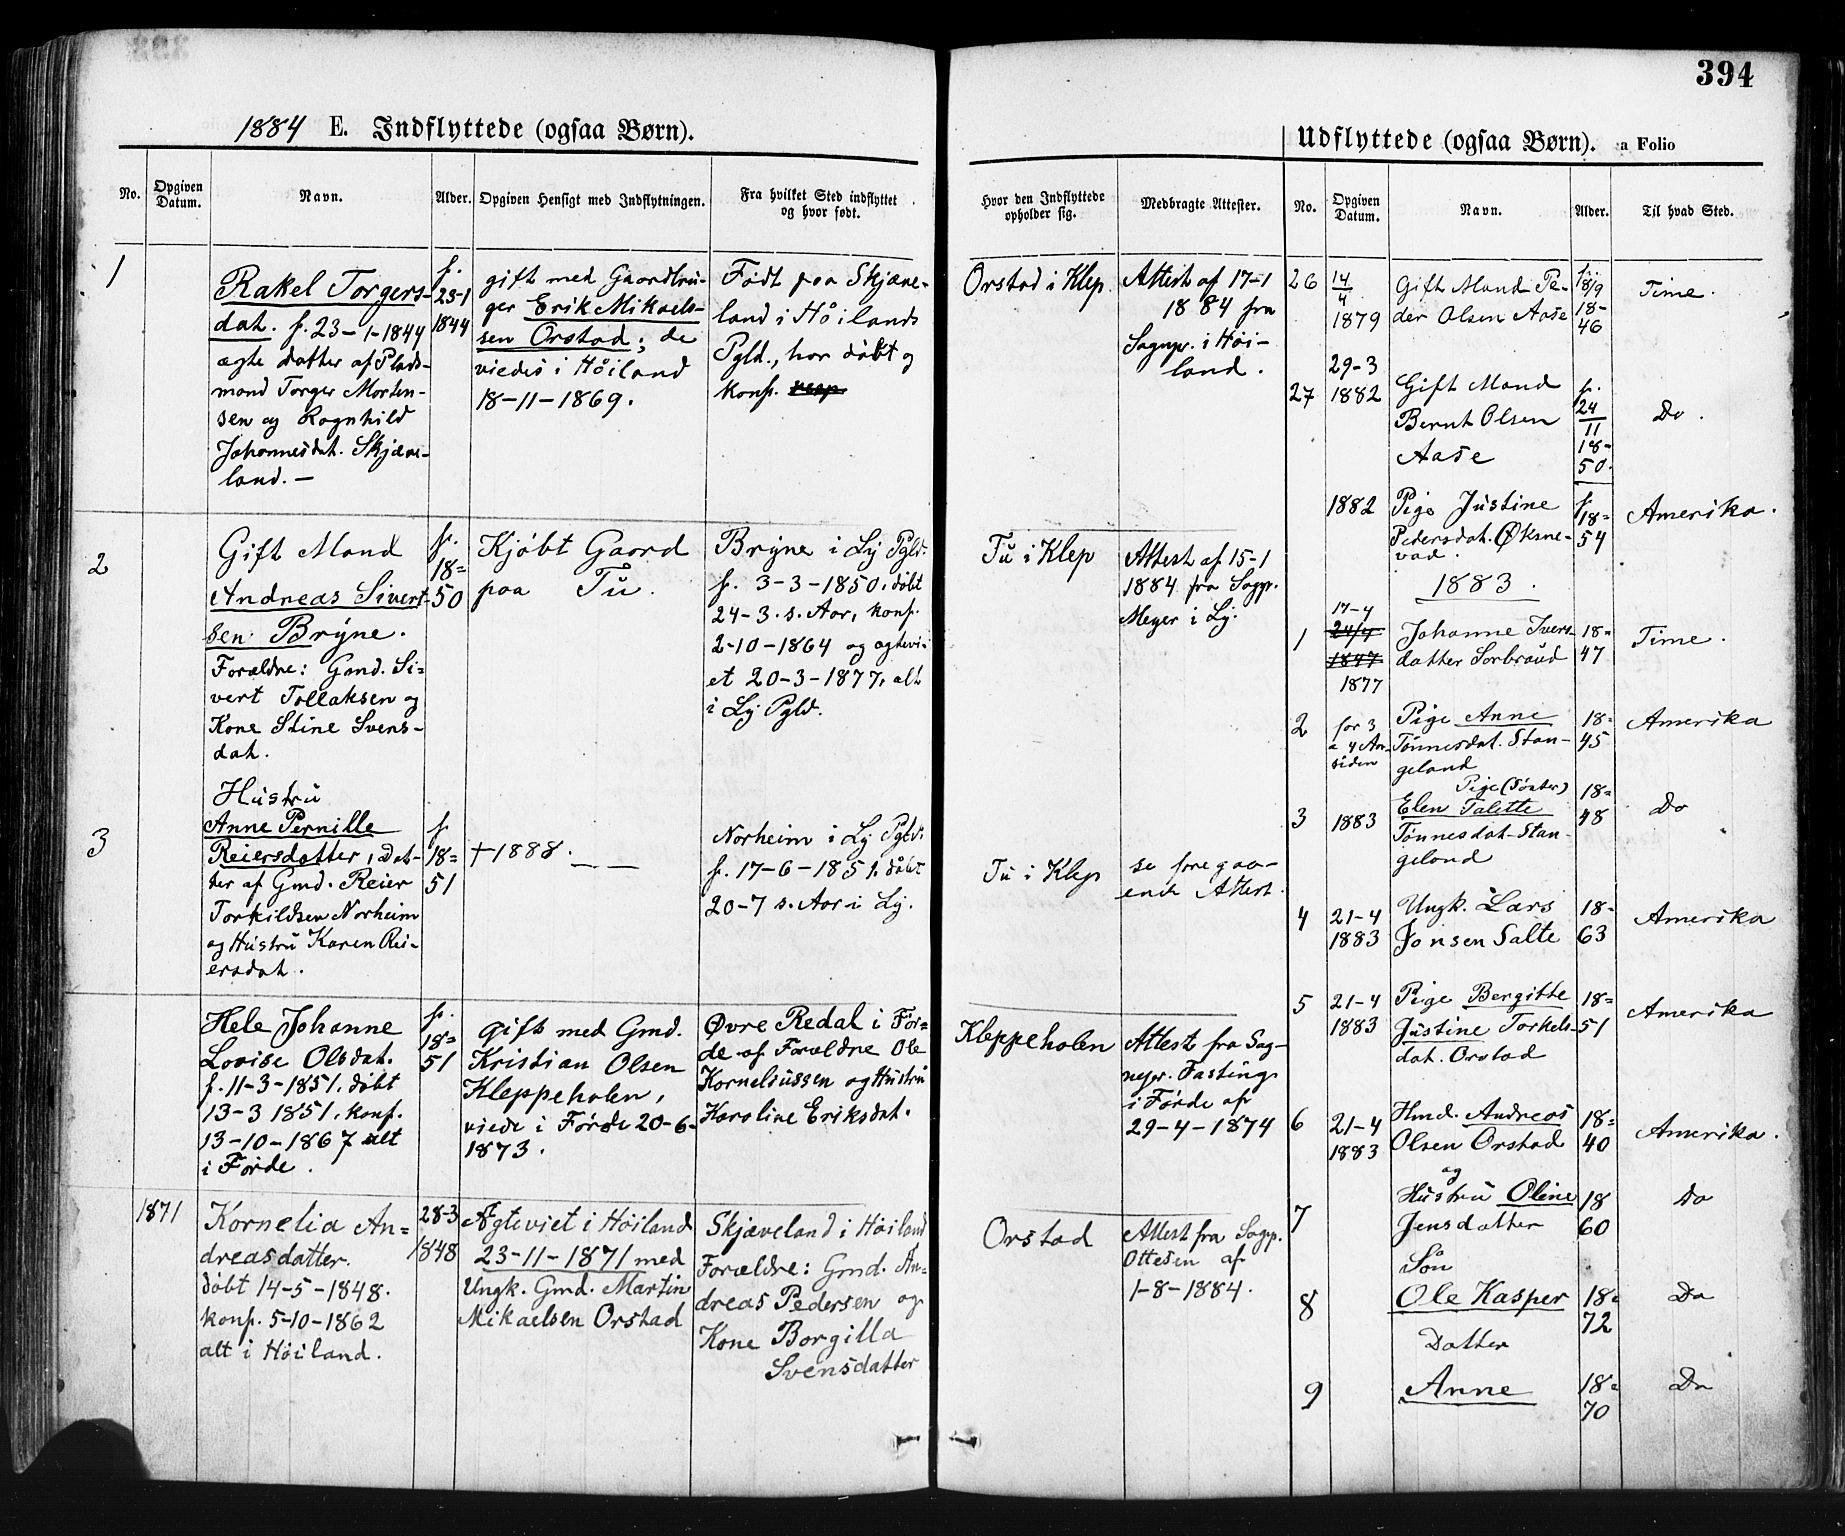 394
1884 E. Indflyttede (ogsaa Børn).
No.
Opgiven Datum.
Navn.
Alder.
Opgiven Hensigt med Indflytningen.
Fra hvilket Sted indflyttet og hvor født.
1
Rakel Torgers-
dat. f. 23-1-1844
ægte datter af Plads-
mand Torger Morten-
sen og Ragnhild
Johannesdat. Skjæve-
land. –
f.
23-1
1844
gift med Gaardbru-
ger Erik Mikaels-
sen Orstad; de
viedes i Høiland
18-11-1869.
Født paa Skjæve-
land i Høilands
Pgld., har døbt og
konf.
2
Gift Mand
Andreas Sivert-
sen Bryne.
Forældre: Gmd. Si-
vert Tollaksen og
Kone Stine Svens-
dat.
f.
18=
50
Kjøbt Gaard
paa Tu.
Bryne i Ly Pgld.
f. 3-3-1850, døbt
24-3. s. Aar, konf.
2-10-1864 og ægtevi-
et 20-3-1877, alt
i Ly Pgld.
3
Hustru
Anne Pernille
Reiersdatter, Dat-
ter af Gmd. Reier
Torkildsen Norheim
og Hustru Karen Rei-
ersdat.
f
18=
51
+1888.
Norheim i Ly Pgld.
f. 17-6-1851, døbt
20-7 s. Aar i Ly.
Hele Johanne
Lovise Olsdat.
f. 11-3-1851, døbt
13-3 1851, konf.
13-10-1867 alt
i Førde.
f.
18=
51
gift med Gmd.
Kristian Olsen
Kleppeholen,
viede i Førde 20-6-
1873.
Øvre Redal i Før-
de af Forældre Ole
Korneliussen og Hustru
Karoline Eriksdat.
1871
Kornelia An=
dreasdatter.
døbt 14-5-1848.
konf. 5-10-1862
alt i Høiland.
28-3
1848
Ægteviet i Høiland
23-11-1871 med
Ungk. Gmd. Martin
Mikaelsen Orstad
Skjæveland i Høiland
Forældre: Gmd. An-
dreas Pedersen og
Kone Borgilla
Svensdatter
Udflyttede (ogsaa Børn).
a Folio
Hvor den Indflyttede opholder sig.
Medbragte Attester.
No.
Opgiven Datum.
Navn.
Alder.
Til hvad Sted.
Orstad i Klep.
Attest af 17-1
1884 fra
Sognpr. i Høi-
land.
Tu i Klep
Attest af 15-1
1884 fra Sogp.
Meyer i Ly.
Tu i Klep
se foregaa-
ende Attest
Kleppeholen
Attest fra Sog-
nepr. Fasting
i Førde af
29-4-1874
Orstad
Attest fra Sogp.
Ottesen af
1-8-1884.
26
14
4
1879
Gift Mand Pe-
der Olsen Aase
f.
18/9
18-
46
Time.
27
29-3
1882
Gift Mand
Bernt Olsen
Aase
f.
24
11
18=
50.
Do.
1882
Pige Justine
Pedersdat. Øksne-
vad.
f.
18=
54
Amerika.
1883.
1
17-4
24/4
1847
1877
Johanne Ivers-
datter Sorbraud
18=
47
Time.
2
for 3
a 4 Aar
siden
Pige Anne
Tønnesdat. Stan-
geland
18=
45
Amerika
3
1883
Pige (Søster)
Elen Talette
Tønnesdat. Stan-
geland
18=
48
Do
4
21-4
1883
Ungk. Lars
Jonsen Salte
18=
63
Amerika
5
21-4
1883
Pige Bergitte
Justine Torkels-
dat. Orstad
18=
51
Amerika
6
21-4
1883
Hmd. Andreas
Olsen Orstad
og
18=
40
Amerika.
7
Hustru Oline
Jensdatter
18
60
Do
8
Søn
Ole Kasper
18=
72
Do
9
Datter
Anne
18=
70
Do